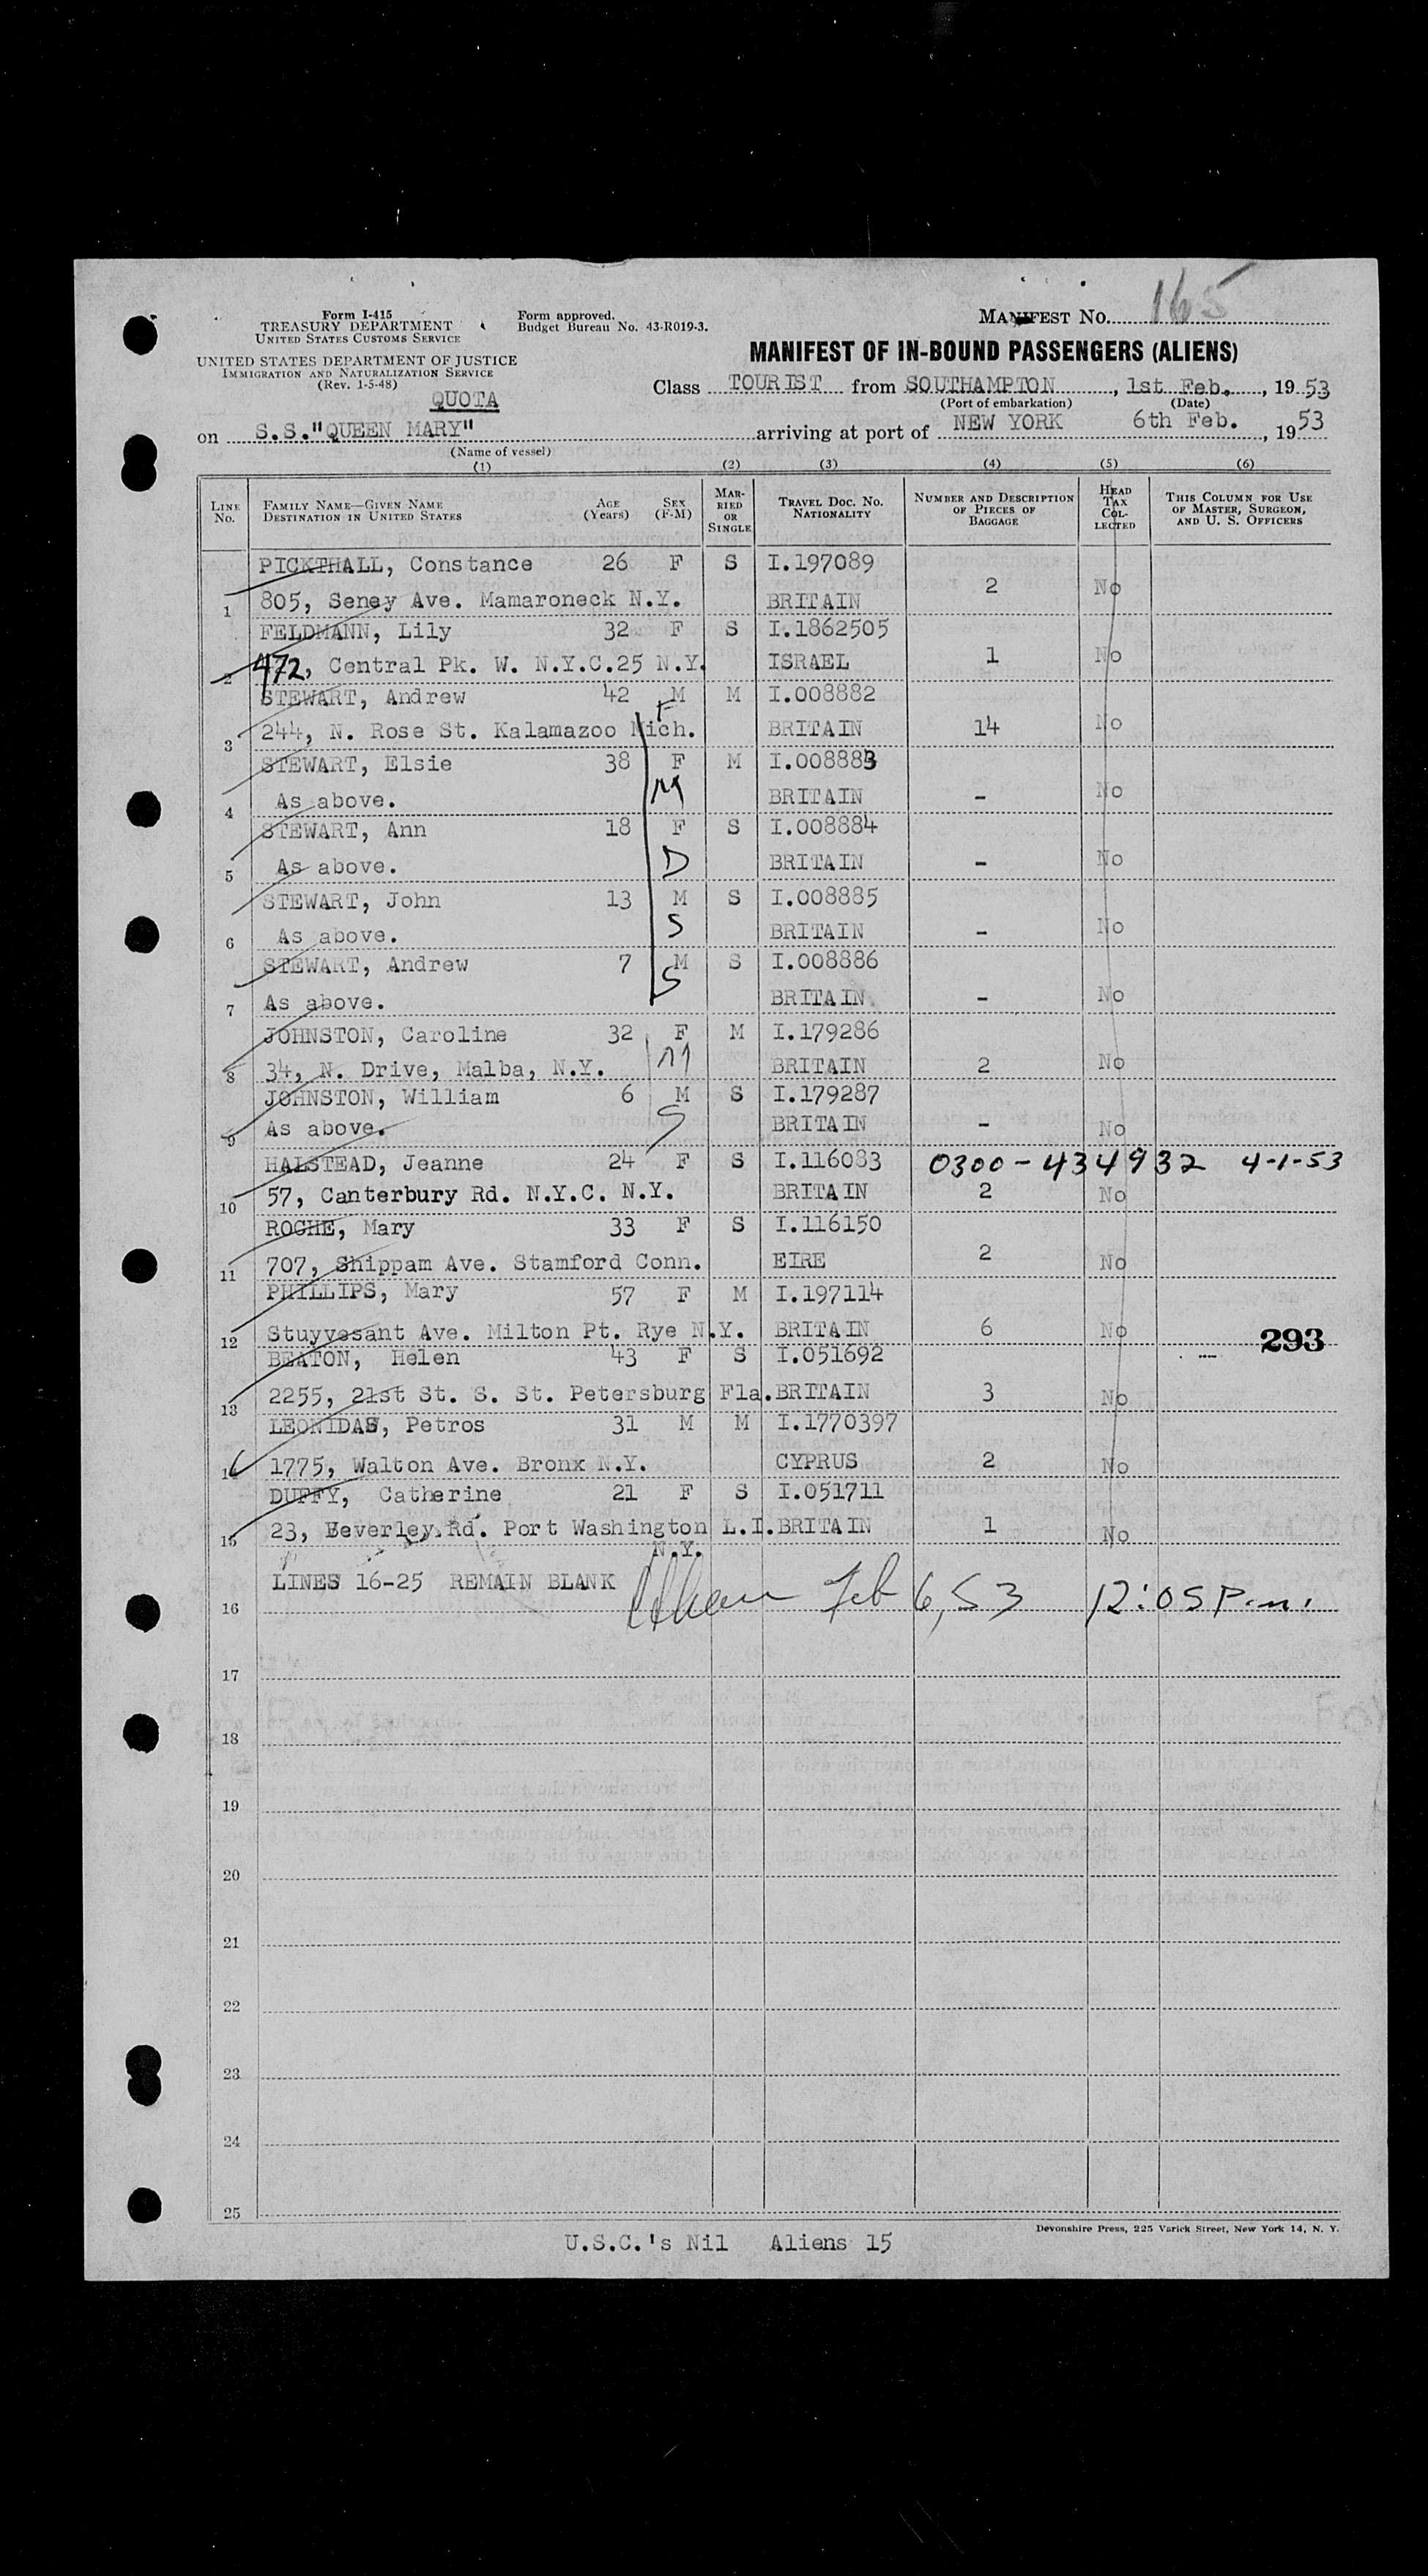 Form I-415
TREASURY DEPARTMENT
UNITED STATES CUSTOMS SERVICE
Form approved.
Budget Bureau No. 43-R019-3.
MANIFEST NO. 165
UNITED STATES DEPARTMENT OF JUSTICE
IMMIGRATION AND NATURALIZATION SERVICE
(Rev. 1-5-48)
MANIFEST OF IN-BOUND PASSENGERS (ALIENS)
QUOTA
Class TOURIST from SOUTHAMPTON, 1st Feb., 1953
(Port of embarkation) (Date)
on S.S."QUEEN MARY" arriving at port of NEW YORK 6th Feb., 1953
(Name of vessel)
(1) (2) (3) (4) (5) (6)
LINE NO. FAMILY NAME—GIVEN NAME DESTINATION IN UNITED STATES AGE (Years) SEX (F-M) MARRIED OR SINGLE TRAVEL DOC. NO. NATIONALITY NUMBER AND DESCRIPTION OF PIECES OF BAGGAGE HEAD TAX COLLECTED THIS COLUMN FOR USE OF MASTER, SURGEON, AND U. S. OFFICERS
PICKTHALL, Constance 26 F S I.197089
1 805, Seney Ave. Mamaroneck N.Y. BRITAIN 2 No
FELDMANN, Lily 32 F S I.1862505
2 472, Central Pk. W. N.Y.C.25 N.Y. ISRAEL 1 No
STEWART, Andrew 42 M M I.008882
F
3 244, N. Rose St. Kalamazoo Mich. BRITAIN 14 No
STEWART, Elsie 38 F M I.008883
M
4 As above. BRITAIN - No
STEWART, Ann 18 F S I.008884
D
5 As above. BRITAIN - No
STEWART, John 13 M S I.008885
S
6 As above. BRITAIN - No
STEWART, Andrew 7 M S I.008886
S
7 As above. BRITAIN - No
JOHNSTON, Caroline 32 F M I.179286
M
8 34, N. Drive, Malba, N.Y. BRITAIN 2 No
JOHNSTON, William 6 M S I.179287
S
9 As above. BRITAIN - No
HALSTEAD, Jeanne 24 F S I.116083 0300-434932 4-1-53
10 57, Canterbury Rd. N.Y.C. N.Y. BRITAIN 2 No
ROCHE, Mary 33 F S I.116150
11 707, Shippam Ave. Stamford Conn. EIRE 2 No
PHILLIPS, Mary 57 F M I.197114
12 Stuyvesant Ave. Milton Pt. Rye N.Y. BRITAIN 6 No 293
BEATON, Helen 43 F S I.051692
13 2255, 21st St. S. St. Petersburg Fla. BRITAIN 3 No
LEONIDAS, Petros 31 M M I.1770397
14 1775, Walton Ave. Bronx N.Y. CYPRUS 2 No
DUFFY, Catherine 21 F S I.051711
15 23, Beverley Rd. Port Washington L.I. BRITAIN 1 No
N.Y.
LINES 16-25 REMAIN BLANK
16 Feb 6, 53 12:05 P.m.
17
18
19
20
21
22
23
24
25
Devonshire Press, 225 Varick Street, New York 14, N. Y.
U.S.C.'s Nil Aliens 15